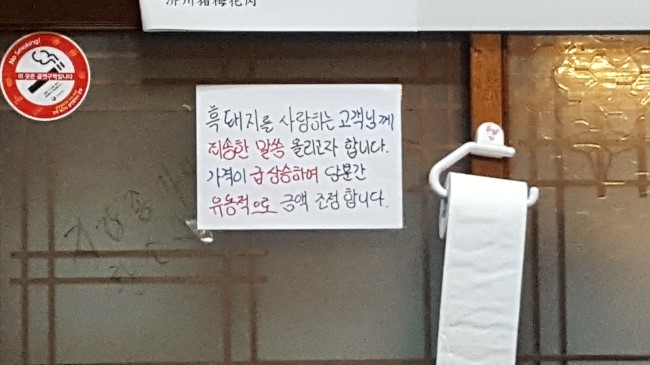 濟州猪梅花肉
No Smoking!
이 곳은 금연구역입니다
흑돼지를 사랑하는 고객님께
죄송한 말씀 올리고자 합니다.
가격이 급상승하여 당분간
유동적으로 금액 조정합니다.